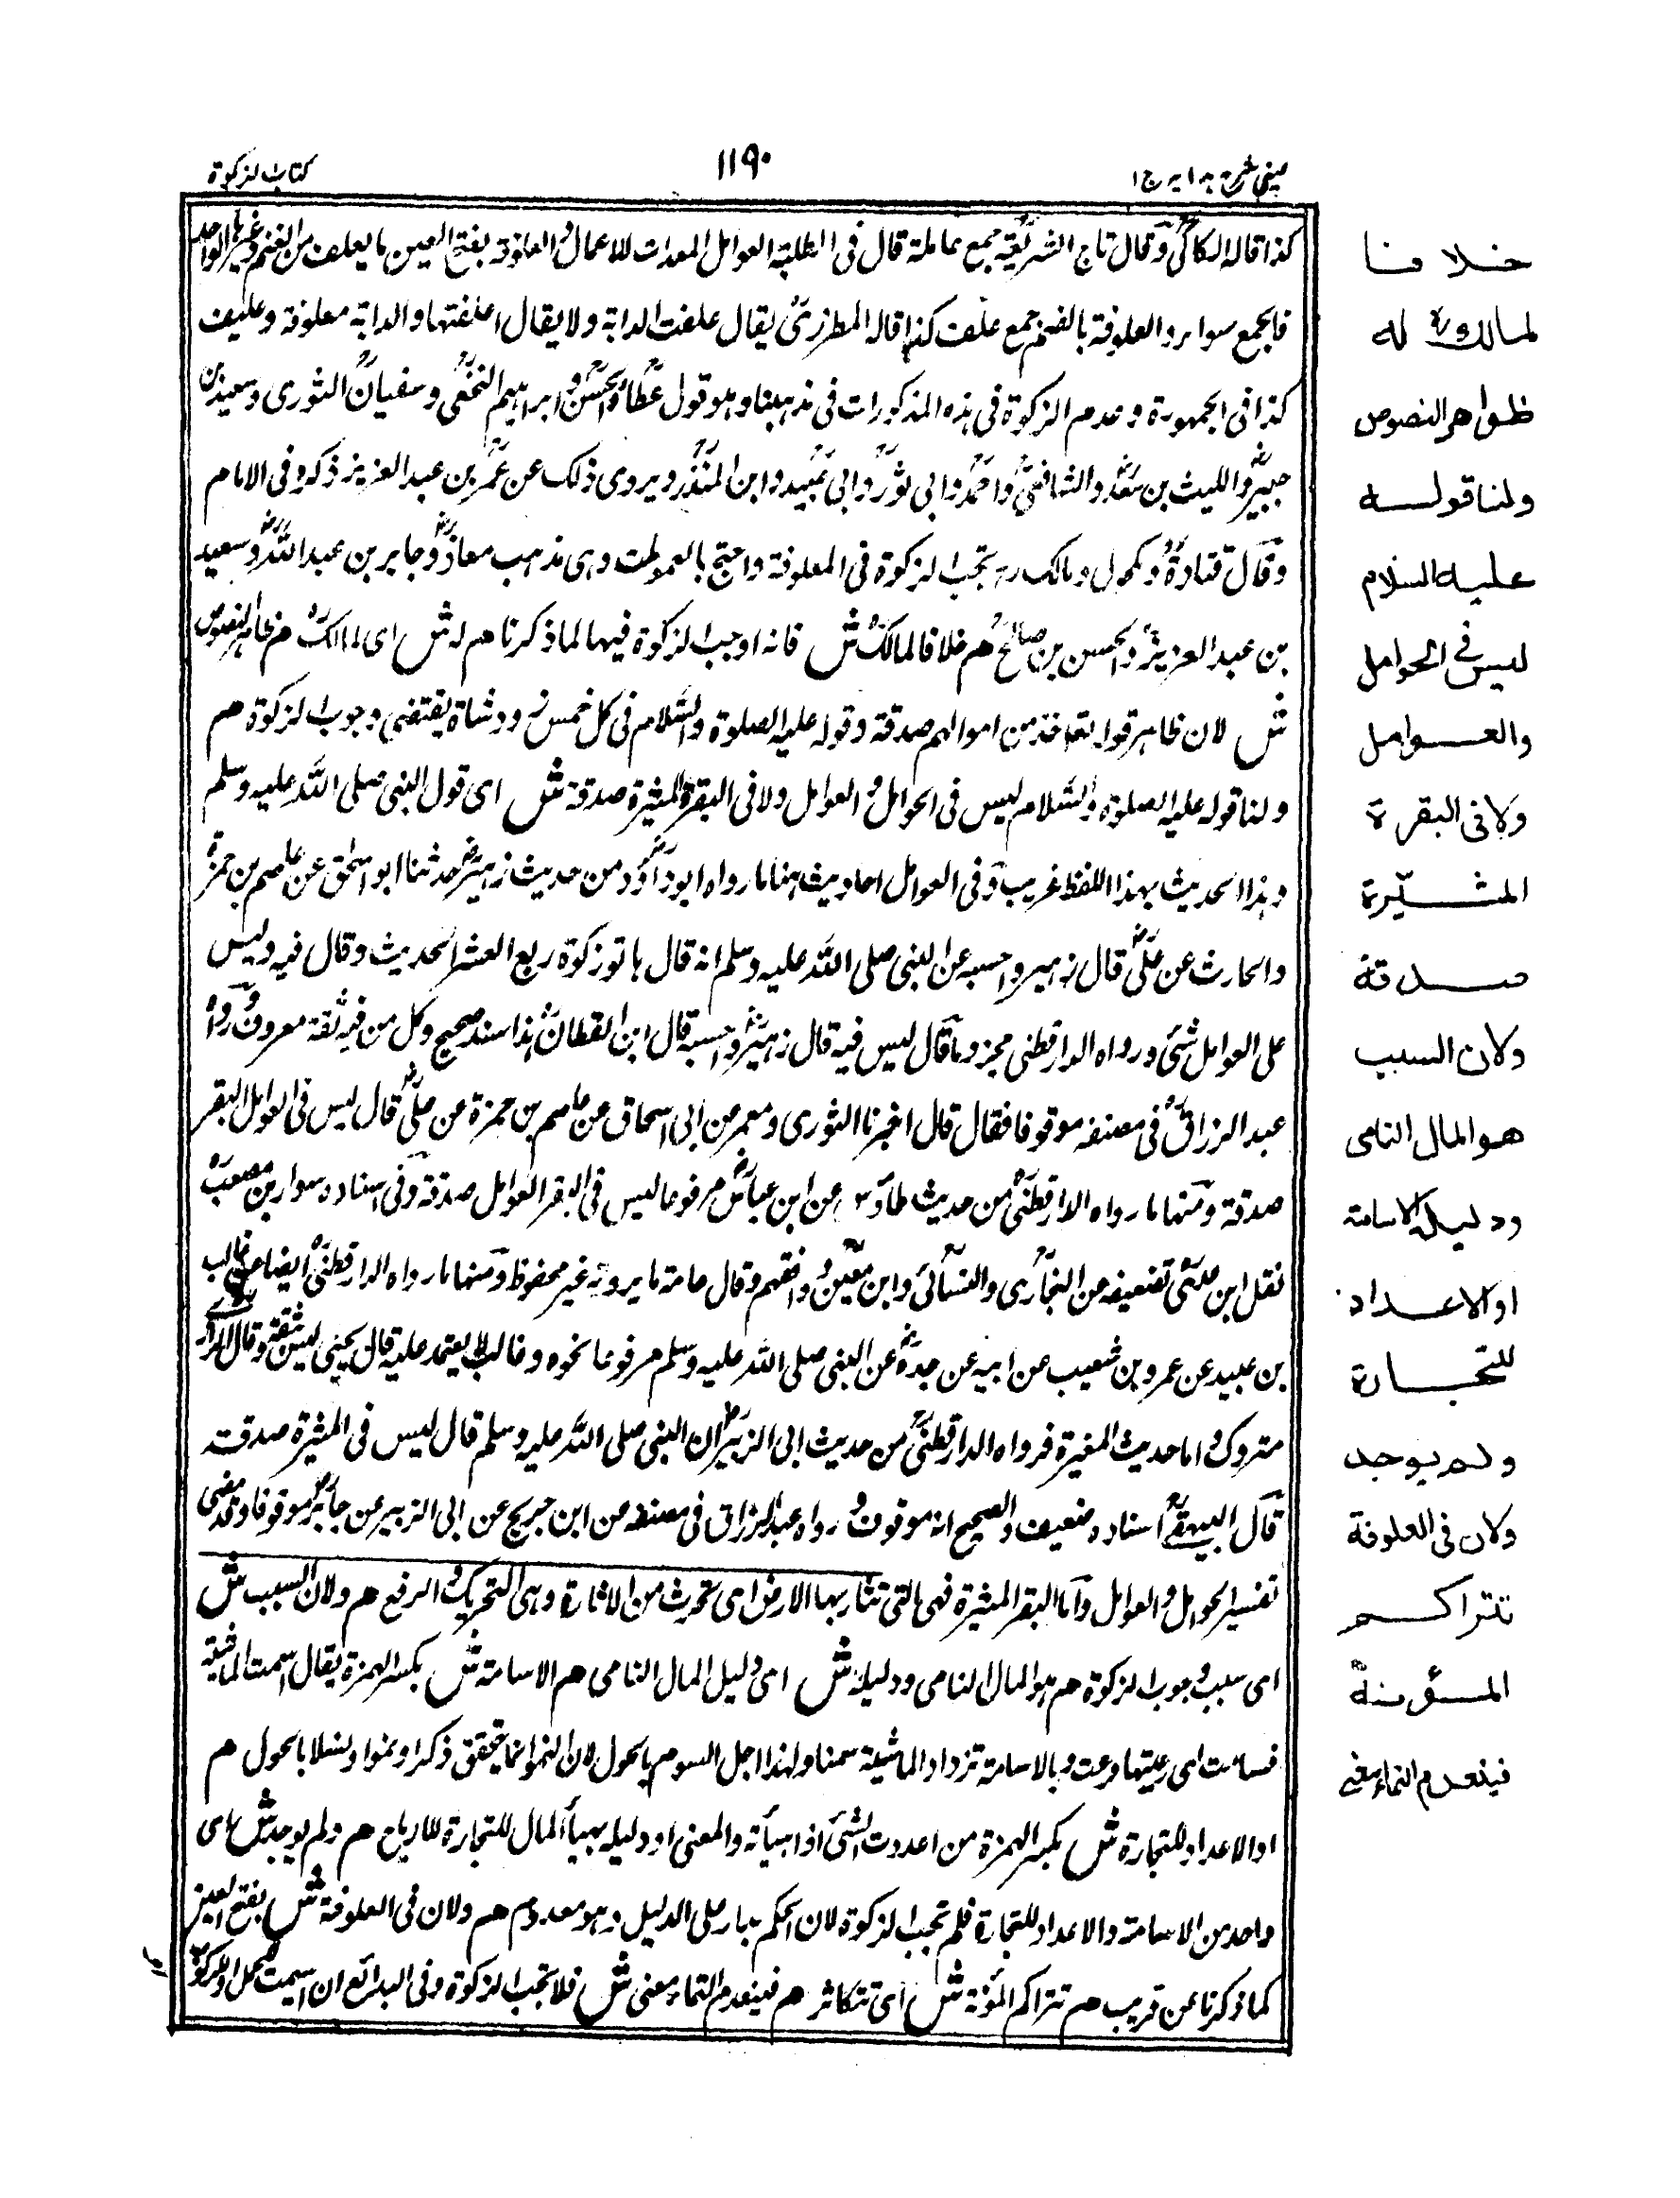 عینی شرح ہدایہ ج ۱
۱۱۹۰
کتاب الزکوة
کذا قاله الکاکی وقال تاج الشریعة جمع عاملة قال فی الطلبة العوامل المعدات للاعمال والعلوفة بفتح العین ما یعلف من الغنم وغیرها الواحد
والجمع سواء والعلوفة بالضم جمع علف کذا قاله المطرزی یقال علفت الدابة ولا یقال اعلفتها والدابة معلوفة وعلیف
کذا فی الجمهرة وعدم الزکوة فی هذه المذکورات فی مذهبنا وهو قول عطاء والحسن وابراهیم النخعی وسفیان الثوری وسعید بن
جبیر واللیث بن سعد والشافعی واحمد وابی ثور وابی عبید وابن المنذر ویروی ذلک عن عمر بن عبد العزیز ذکره فی الامام
وقال قتادة ومکحول ومالک رح تجب الزکوة فی المعلوفة واحتج بالعمومات وهی مذهب معاذ وجابر بن عبد الله وسعید
بن عبد العزیز والحسن بن صالح هم خلافا لمالک ش فانه اوجب الزکوة فیها لما ذکرنا هم له ش ای لمالک هم ظاهر النصوص
ش لان ظاهر قوله تعا خذ من اموالهم صدقة وقوله علیه الصلوة والسلام فی کل خمس ذود شاة یقتضی وجوب الزکوة هم
ولنا قوله علیه الصلوة والسلام لیس فی الحوامل والعوامل ولا فی البقرة المثیرة صدقة ش ای قول النبی صلی الله علیه وسلم
وهذا الحدیث بهذا اللفظ غریب وفی العوامل احادیث منها ما رواه ابو داؤد من حدیث زهیر حدثنا ابو اسحق عن عاصم بن حمزة
والحارث عن علی قال زهیر واحسبه عن النبی صلی الله علیه وسلم انه قال هاتوا زکوة ربع العشر الحدیث وقال فیه ولیس
علی العوامل شئ ورواه الدارقطنی مجزوما قال لیس فیه قال زهیر واحسبه قال ابن القطان هذا سند صحیح وکل من فیه ثقة معروف ورواه
عبد الرزاق فی مصنفه موقوفا فقال قال اخبرنا الثوری ومعمر عن ابی اسحاق عن عاصم بن حمزة عن علی قال لیس فی العوامل البقر
صدقة ومنها ما رواه الدارقطنی من حدیث طاؤس عن ابن عباس مرفوعا لیس فی البقر العوامل صدقة وفی اسناده سوار بن مصعب
نقل ابن عدی تضعیفه عن البخاری والنسائی وابن معین ووافقهم وقال عامة ما یرویه غیر محفوظ ومنها ما رواه الدارقطنی ایضا عن غالب
بن عبید عن عمرو بن شعیب عن ابیه عن جده عن النبی صلی الله علیه وسلم مرفوعا نحوه وغالب لا یعتمد علیه قال یحیی لیس بثقة وقال الرازی
متروک واما حدیث المغیرة فرواه الدارقطنی من حدیث ابی الزبیر ان النبی صلی الله علیه وسلم قال لیس فی المثیرة صدقة
قال البیهقی اسناده ضعیف والصحیح انه موقوف ورواه عبد الرزاق فی مصنفه عن ابن جریج عن ابی الزبیر عن جابر موقوفا وقد مضی
تفسیر الحوامل والعوامل واما البقر المثیرة فهی التی تثار بها الارض ای تحرث من الاثارة وهی التحریک والرفع هم ولان السبب ش
ای سبب وجوب الزکوة هم هو المال النامی ودلیله ش ای دلیل المال النامی هم الاسامة ش بکسر الهمزة یقال اسمت الماشیة
فسامت ای رعیتها فرعت وبالاسامة تزداد الماشیة سمنا ولهذا اجل السوم بالحول لان النمو انما یتحقق ذکرا ونموا ونسلا بالحول هم
او الاعداد للتجارة ش بکسر الهمزة من اعددت الشئ اذا هیأته والمعنی او دلیله یهیأ المال للتجارة للارباح هم ولم یوجد ش ای
واحد من الاسامة والاعداد للتجارة فلم تجب الزکوة لان الحکم یدار علی الدلیل وهو معدوم هم ولان فی العلوفة ش بفتح العین
کما ذکرنا عن قریب هم تتراکم المؤنة ش ای تتکاثر هم فینعدم النماء معنی ش فلا تجب الزکوة وفی البدائع ان اسیمت للحمل او للرکوب
خلافا
لمالک رح له
ظواهر النصوص
ولنا قوله
علیه السلام
لیس فی الحوامل
والعوامل
ولا فی البقرة
المثیرة
صدقة
ولان السبب
هو المال النامی
ودلیله الاسامة
او الاعداد
للتجارة
ولم یوجد
ولان فی العلوفة
تتراکم
المؤنة
فینعدم النماء معنی